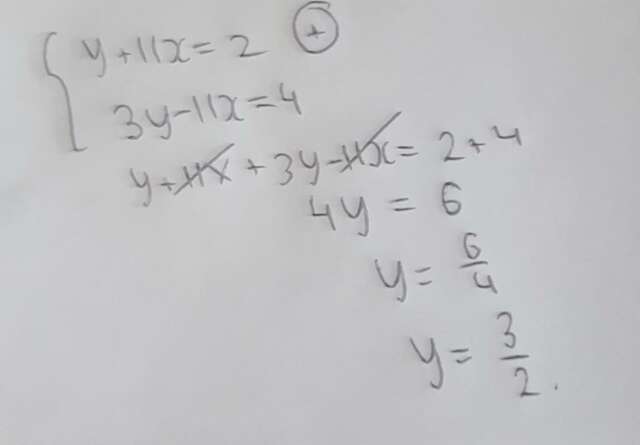 y+11x=2 (+)
3y-11x=4
y+11x+3y-11x=2+4
4y=6
y=6/4
y=3/2.